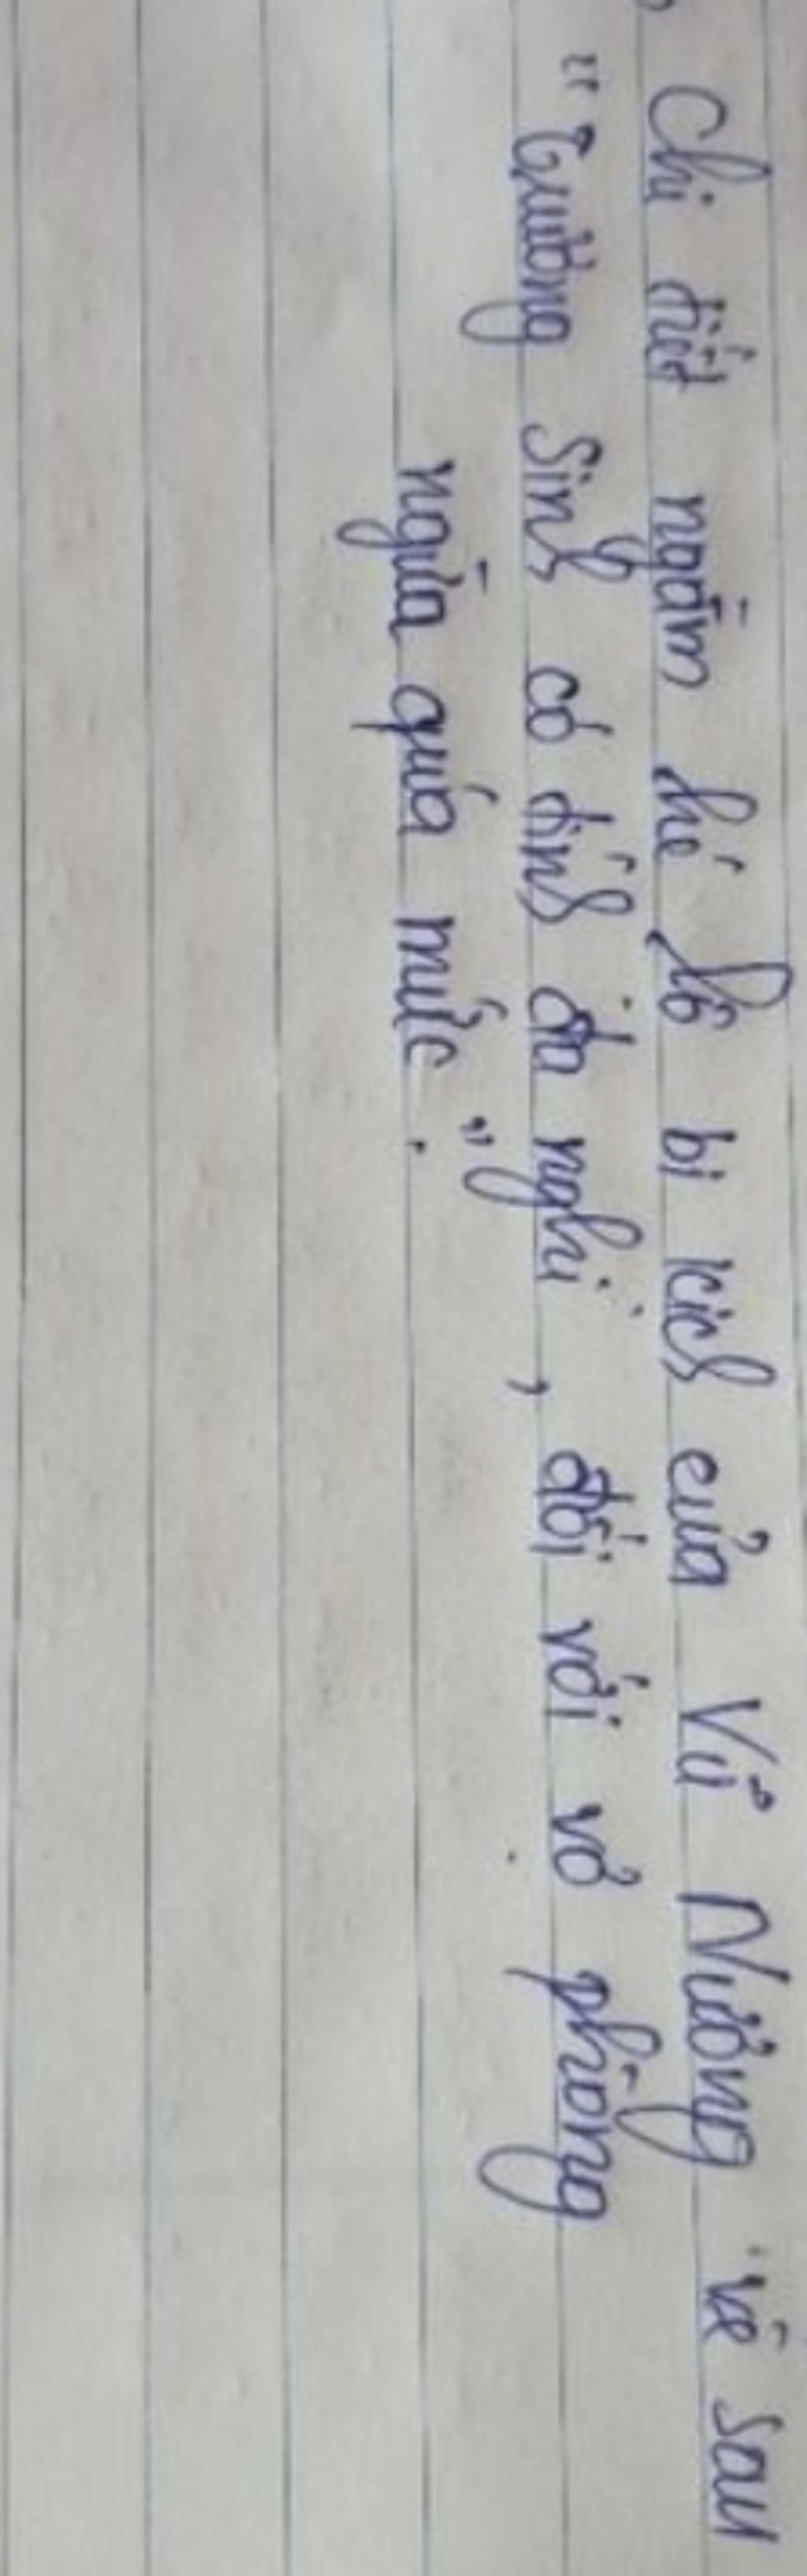 Chi tiết ngầm hé lộ bi kịch của Vũ Nương về sau
"Trương Sinh có tính đa nghi, đối với vợ phòng
ngừa quá mức".